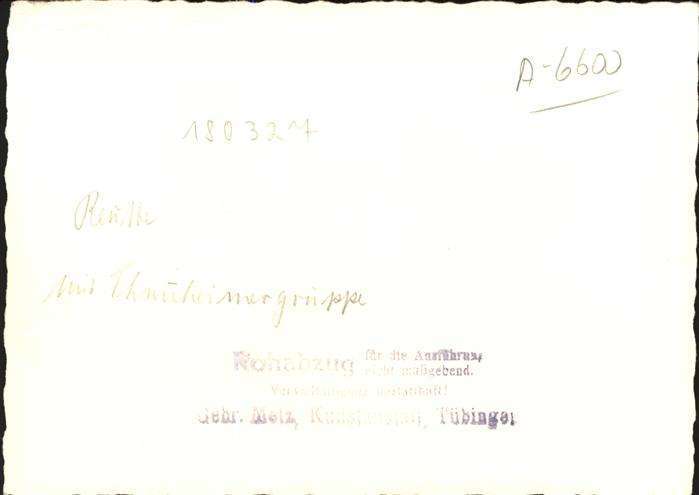 A-6600
180327
Reutte
mit Thaneller gruppe
Rohabzug für die Ausführung
nicht maßgebend.
Gebr. Metz, Tübingen